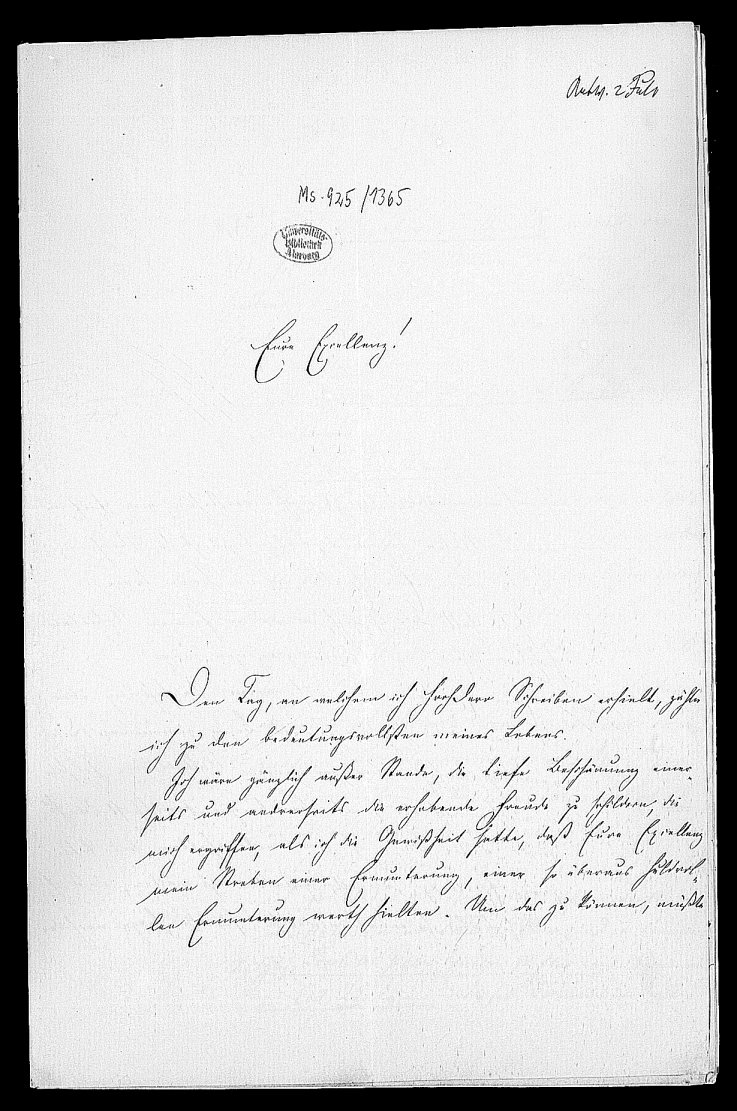 Antw. 2 Febr
Ms. 925/1365
Universitäts-
Bibliothek
Marburg
Eure Excellenz!
Den Tag, an welchem ich Hochdero Schreiben erhielt, zähle
ich zu den bedeutungsvollsten meines Lebens.
Ich wäre gänzlich außer Stande, die tiefe Beschämung einer-
seits und andrerseits die erhebende Freude zu schildern, die
mich ergriffen, als ich die Gewißheit hatte, daß Eure Excellenz
mein Streben einer Ermunterung, einer so überaus huldvol-
len Ermunterung werth hielten. Um das zu können, müßte